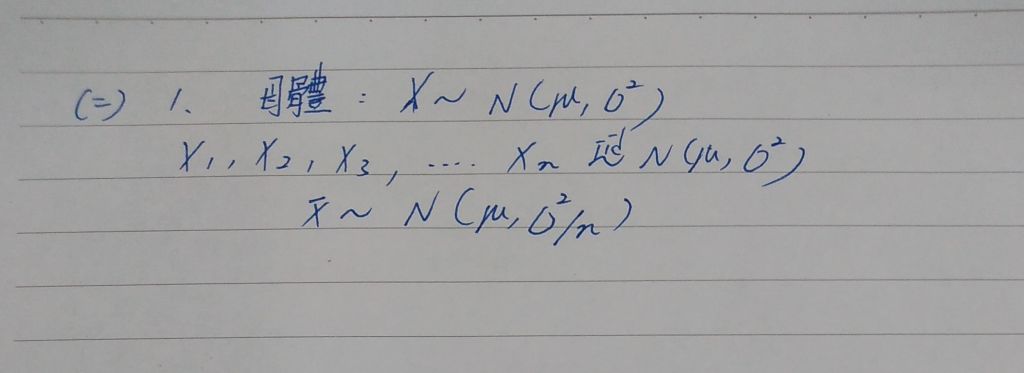 (二) 1、 母體 : X ~ N(μ, σ²)
X₁, X₂, X₃, .... Xₙ iid N(μ, σ²)
x̄ ~ N(μ, σ²/n)